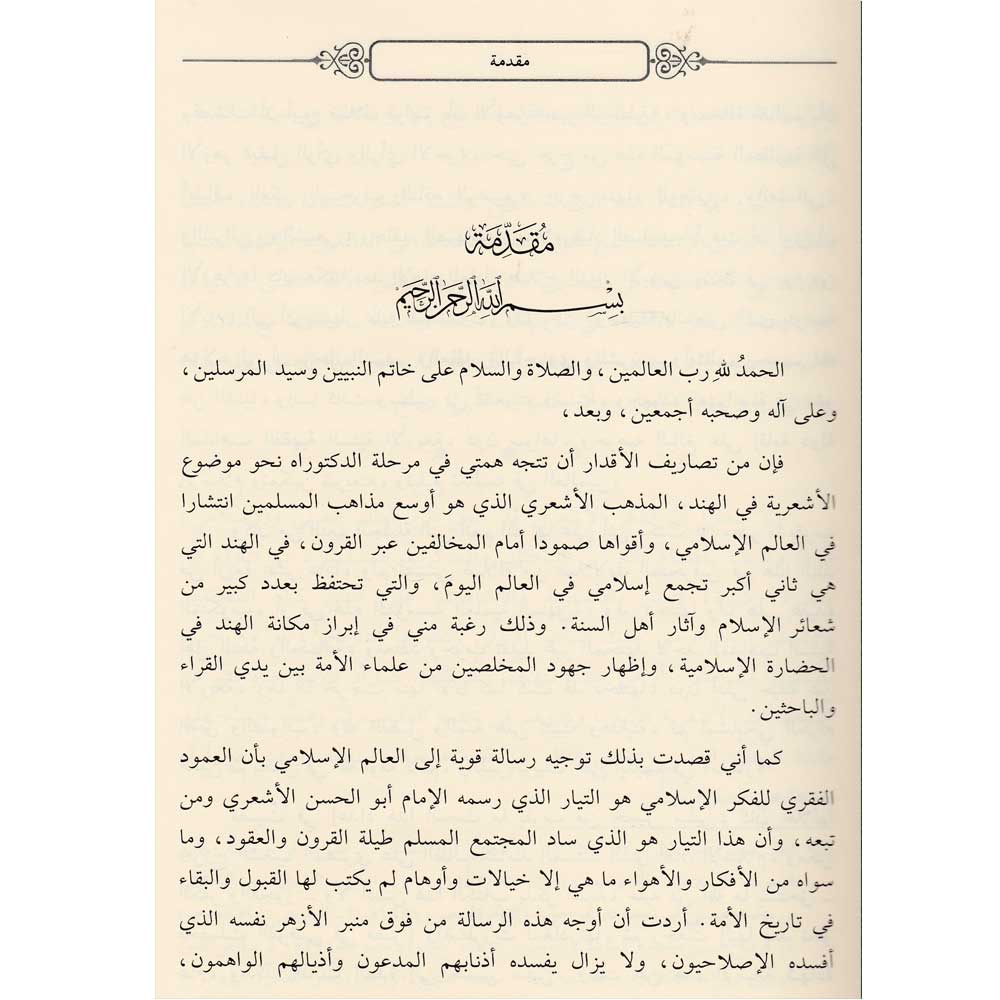 مقدمة
مُقَدِّمَة
بِسْمِ اللهِ الرَّحْمٰنِ الرَّحِيْمِ
الحمدُ للهِ رب العالمين، والصلاة والسلام على خاتم النبيين وسيد المرسلين،
وعلى آله وصحبه أجمعين، وبعد،
فإن من تصاريف الأقدار أن تتجه همتي في مرحلة الدكتوراه نحو موضوع
الأشعرية في الهند، المذهب الأشعري الذي هو أوسع مذاهب المسلمين انتشارا
في العالم الإسلامي، وأقواها صمودا أمام المخالفين عبر القرون، في الهند التي
هي ثاني أكبر تجمع إسلامي في العالم اليومَ، والتي تحتفظ بعدد كبير من
شعائر الإسلام وآثار أهل السنة. وذلك رغبة مني في إبراز مكانة الهند في
الحضارة الإسلامية، وإظهار جهود المخلصين من علماء الأمة بين يدي القراء
والباحثين.
كما أني قصدت بذلك توجيه رسالة قوية إلى العالم الإسلامي بأن العمود
الفقري للفكر الإسلامي هو التيار الذي رسمه الإمام أبو الحسن الأشعري ومن
تبعه، وأن هذا التيار هو الذي ساد المجتمع المسلم طيلة القرون والعقود، وما
سواه من الأفكار والأهواء ما هي إلا خيالات وأوهام لم يكتب لها القبول والبقاء
في تاريخ الأمة. أردت أن أوجه هذه الرسالة من فوق منبر الأزهر نفسه الذي
أفسده الإصلاحيون، ولا يزال يفسده أذنابهم المدعون وأذيالهم الواهمون،